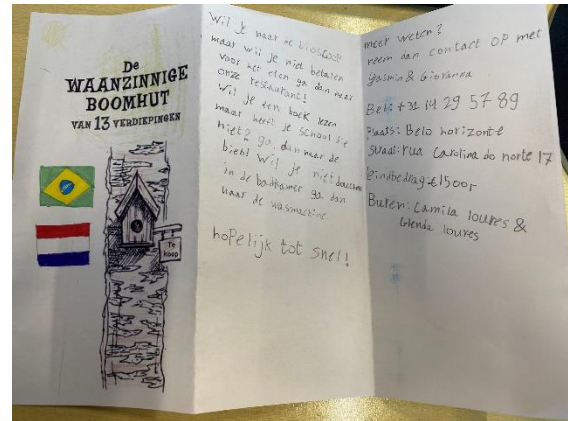 De
WAANZINNIGE
BOOMHUT
VAN 13 VERDIEPINGEN
Te
koop
Wil je naar de bioscoop
maar wil je niet betalen
voor het eten ga dan naar
onze restaurant!
Wil je een boek lezen
maar heeft je school die
niet? ga dan naar de
bieb! Wil je niet douchen
in de badkamer ga dan
naar de wasmachine.
hopelijk tot snel!
meer weten?
neem dan contact OP met
Yasmin & Giovanna
Bel: +31 14 29 57 89
Plaats: Belo horizonte
straat: rua Carolina do norte 17
eindbedrag €1500,-
Buren: Camila loures &
Glenda loures